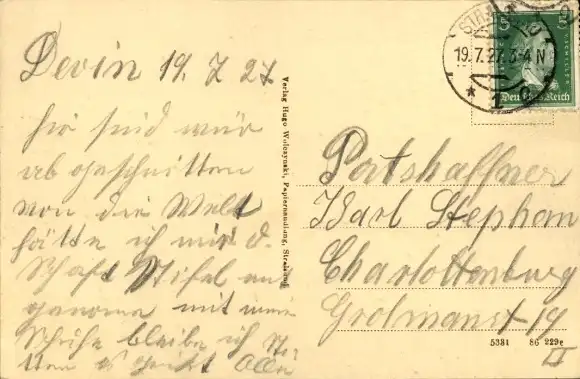 Devin 19. 7 27
hir sind wür
ab geschnitten
von die Welt
hätte ich mir d.
Schaft Stifel an
genoma mit mein
Schuhe bleibe ich
Verlag Hugo Wolczynski, Papierhandlung, Stralsund.
STRA
19.7.27.3-4 N
* 1 c
Deutsches Reich
Portshaffner
Karl Stephan
Charlottenburg
Grolmanst 19
II
5381 86 229e